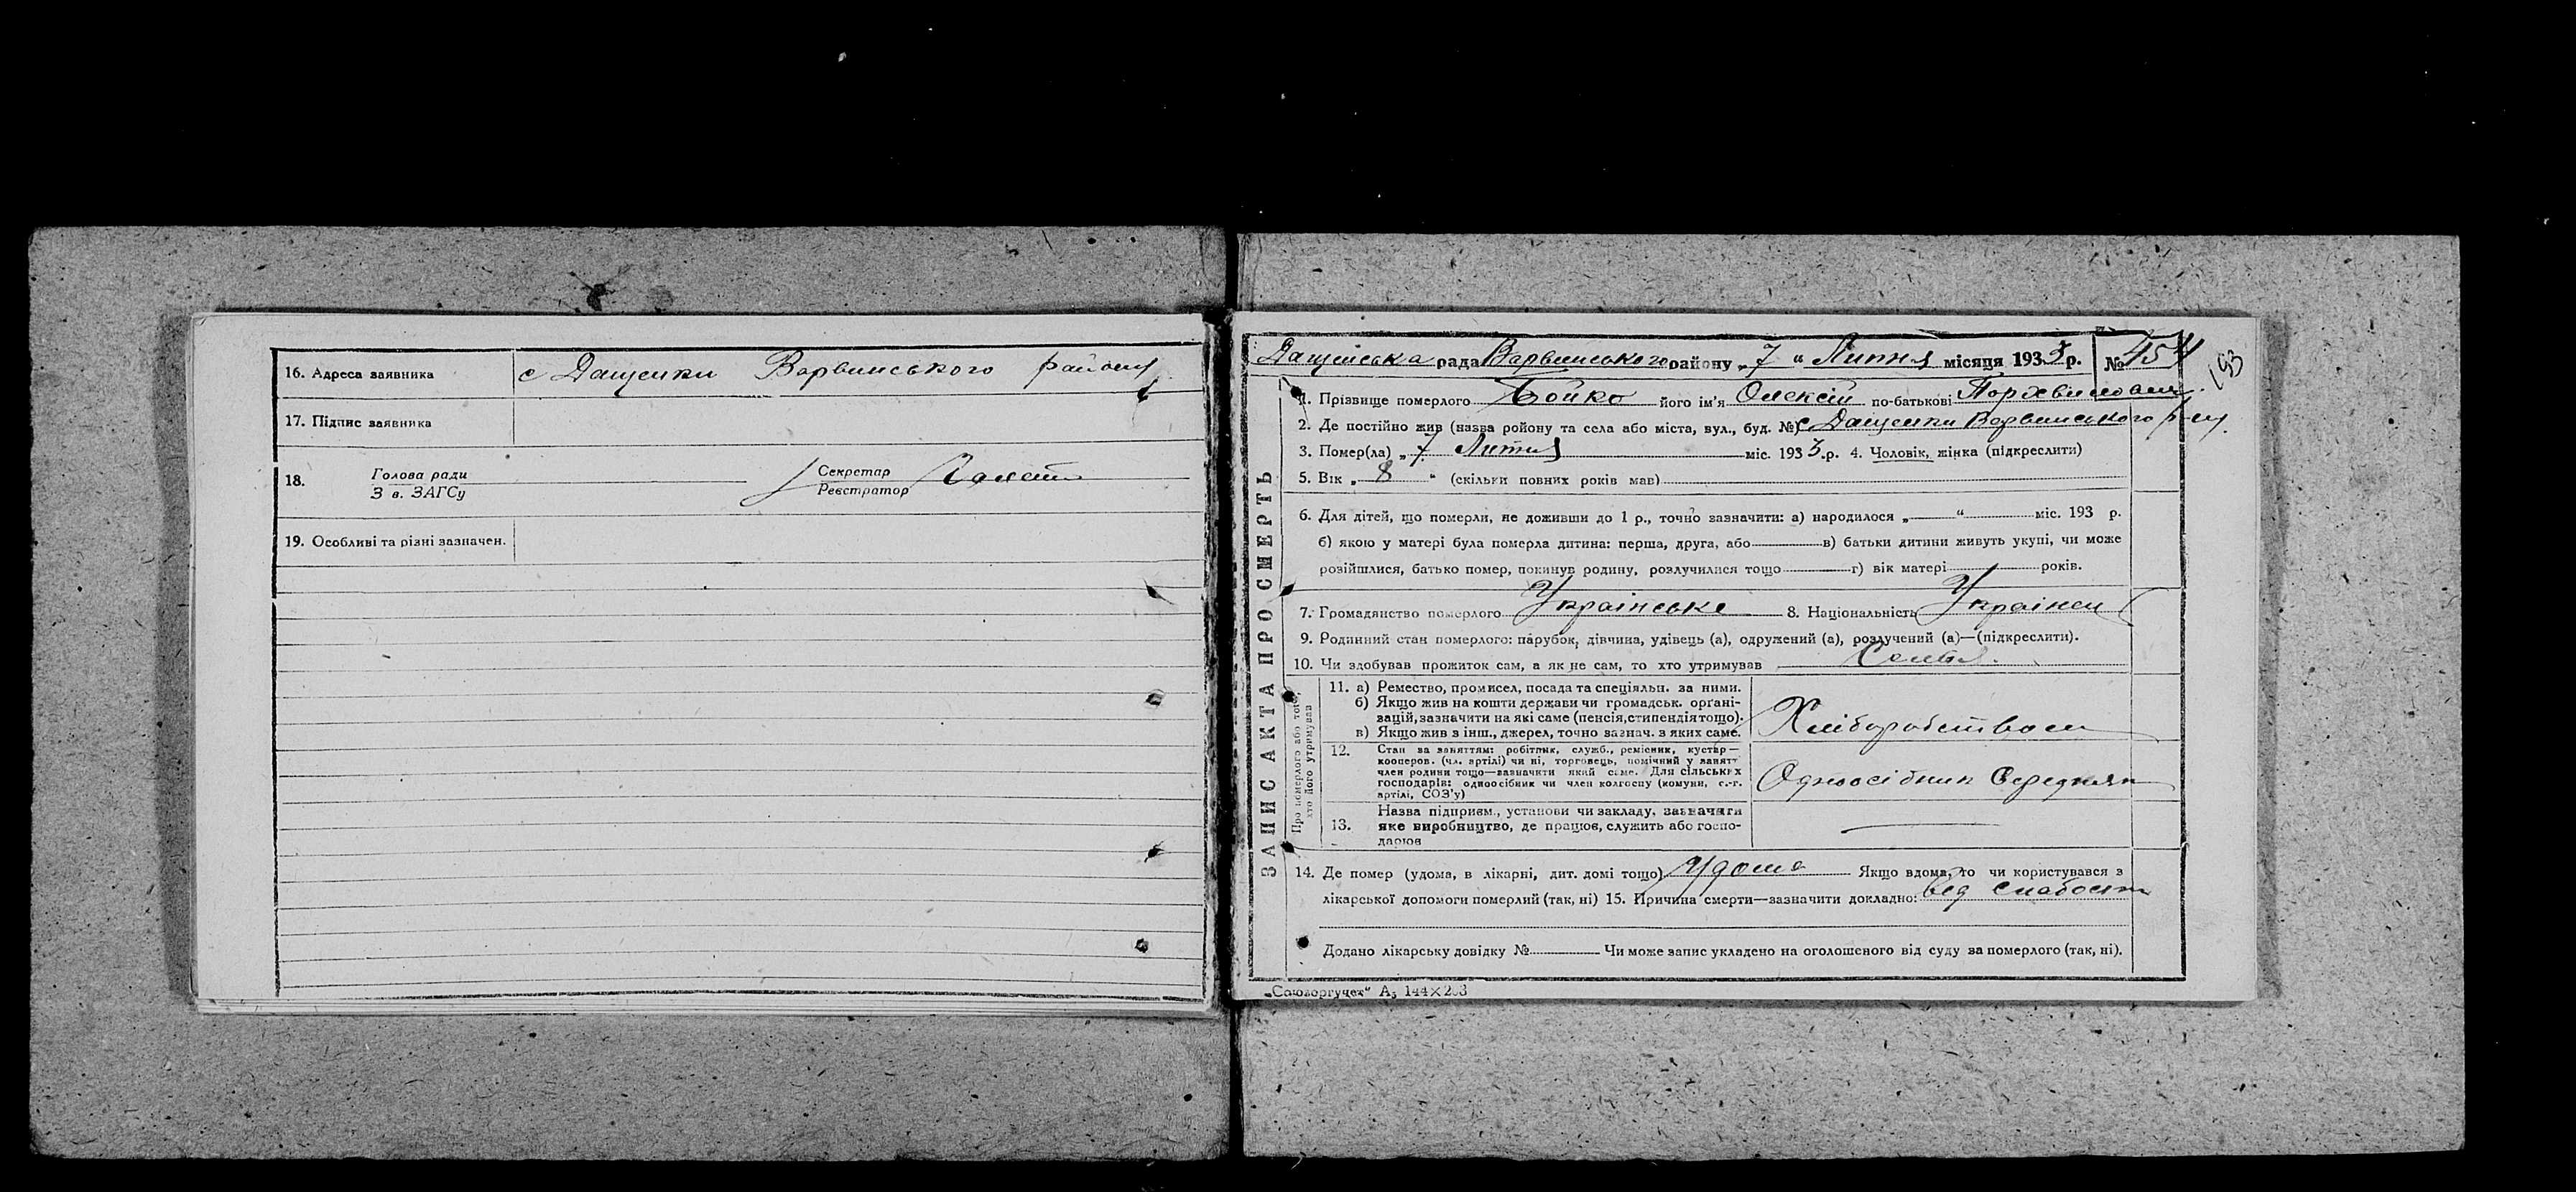 16. Адреса заявника с Дащенки Варвинського району
17. Підпис заявника
18. Голова ради Секретар
З в. ЗАГСу Реєстратор
19. Особливі та різні зазначен.
рада Варвинського району „ 7 “ Липня місяця 1933 р. №
193
1. Прізвище померлого Бойко його ім'я Олексій по-батькові
2. Де постійно жив (назва ройону та села або міста, вул., буд. №) с Дащенки Варвинського р-ну
3. Помер(ла) „ 7 Липня міс. 1933.р. 4. Чоловік, жінка (підкреслити)
5. Вік „ 8 “ (скільки повних років мав)
6. Для дітей, що померли, не доживши до 1 р., точно зазначити: а) народилося „ “ міс. 193 р.
б) якою у матері була померла дитина: перша, друга, або в) батьки дитини живуть укупі, чи може
розійшлися, батько помер, покинув родину, розлучилися тощо г) вік матері років.
7. Громадянство померлого Українське 8. Національність
9. Родинний стан померлого: парубок, дівчина, удівець (а), одружений (а), розлучений (а)—(підкреслити).
10. Чи здобував прожиток сам, а як не сам, то хто утримував
ЗАПИС АКТА ПРО СМЕРТЬ
Про померлого або того,
хто його утримував
11. а) Ремество, промисел, посада та спеціяльн. за ними.
б) Якщо жив на кошти держави чи громадськ. органі-
зацій, зазначити на які саме (пенсія, стипендія тощо).
в) Якщо жив з інш., джерел, точно зазнач. з яких саме.
Хліборобством
12. Стан за заняттям: робітник, служб., ремісник, кустар—
кооперов. (чл. артілі) чи ні, торговець, помічний у занятт
член родини тощо—зазначити який саме. Для сільських
господарів: одноосібник чи член колгоспу (комуни, с.-г.
артілі, СОЗ'у)
Одноосібник Середняк
13. Назва підприєм., установи чи закладу, зазначити
яке виробництво, де працює, служить або госпо-
дарює
14. Де помер (удома, в лікарні, дит. домі тощо) Удома Якщо вдома, то чи користувався з
лікарської допомоги померлий (так, ні) 15. Причина смерти—зазначити докладно: від слабости
Додано лікарську довідку № Чи може запис укладено на оголошеного від суду за померлого (так, ні).
„Союзоргучет“ А₅ 144×203